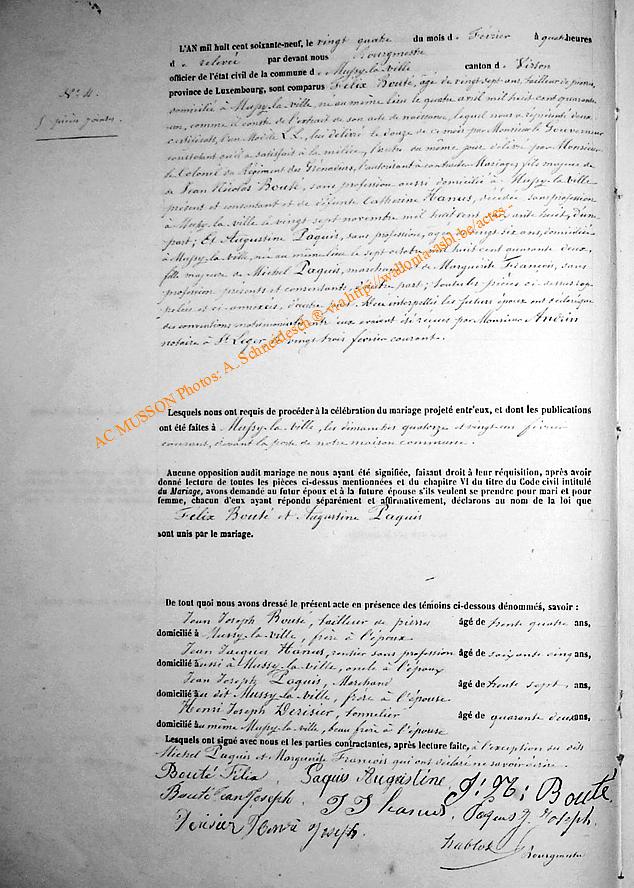 N° 4.
5 pièces jointes
L'AN mil huit cent soixante-neuf, le vingt quatre du mois d e Février à quatre heures
d e relevée par devant nous Bourgmestre
officier de l'état civil de la commune d e Mussy-la-Ville canton d e Virton
province de Luxembourg, sont comparus Felix Bouté, âgé de vingt sept ans, tailleur de pierres,
domicilié à Mussy-la-ville, né au même lieu le quatre avril mil huit cent quarante
un, comme il conste de l'extrait de son acte de naissance, lequel nous a représenté deux
certificats, l'un Modèle L.L., lui délivré le douze de ce mois par Monsieur le Gouverneur
constatant qu'il a satisfait à la milice, l'autre du même jour délivré par Monsieur
le Colonel du Régiment des Grenadiers, l'autorisant à contracter Mariage, fils majeur de
de Jean Nicolas Bouté, sans profession aussi domicilié à Mussy-la-Ville
présent et consentant et de défunte Catherine Hanus, décédée sans profession
à Mussy-la-ville le vingt sept novembre mil huit cent huit, d'une
part, Et Augustine Paquis, sans profession, âgée de vingt six ans, domiciliée
à Mussy-la-ville, née au même lieu le sept octobre mil huit cent quarante deux,
fille majeure de Michel Paquis, marchand et de Marguerite François, sans
profession présents et consentants, d'autre part; toutes les pièces ci-dessus rap
pelées et ci-annexées, d'autre part. Nous interpellé les futurs époux ont déclaré que
des conventions matrimoniales entre eux avaient été reçues par Monsieur Andrin
notaire à St Léger le vingt trois février courant.
Lesquels nous ont requis de procéder à la célébration du mariage projeté entr'eux, et dont les publications
ont été faites à Mussy-la-ville, les dimanches quatorze et vingt-un février
courant, devant la porte de notre maison commune.
Aucune opposition audit mariage ne nous ayant été signifiée, faisant droit à leur réquisition, après avoir
donné lecture de toutes les pièces ci-dessus mentionnées et du chapitre VI du titre du Code civil intitulé
du Mariage, avons demandé au futur époux et à la future épouse s'ils veulent se prendre pour mari et pour
femme, chacun d'eux ayant répondu séparément et affirmativement, déclarons au nom de la loi que
Felix Bouté et Augustine Paquis
sont unis par le mariage.
De tout quoi nous avons dressé le présent acte en présence des témoins ci-dessous dénommés, savoir :
Jean Joseph Bouté, tailleur de pierres âgé de trente quatre ans,
domicilié à Mussy-la-ville, frère à l'époux
Jean Jacques Hanus, rentier sans profession âgé de soixante cinq ans,
domicilié aussi à Mussy-la-ville, oncle à l'époux
Jean Joseph Paquis, Marchand âgé de trente sept ans,
domicilié au dit Mussy-la-ville, frère à l'épouse
Henri Joseph Derisier, tonnelier âgé de quarante deux ans,
domicilié au même Mussy-la-ville, beau frère à l'épouse
Lesquels ont signé avec nous et les parties contractantes, après lecture faite, à l'exception du dit
Michel Paquis et Marguerite François qui ont déclaré ne savoir écrire.
Bouté Félix Paquis Augustine J: N: Bouté
Bouté Jean Joseph J J hanus Paquis J. Joseph.
Henri Joseph.
Bourgmestre
AC MUSSON Photos: A. Schneidesch ® via http://wallonia-asbl.be/actes -